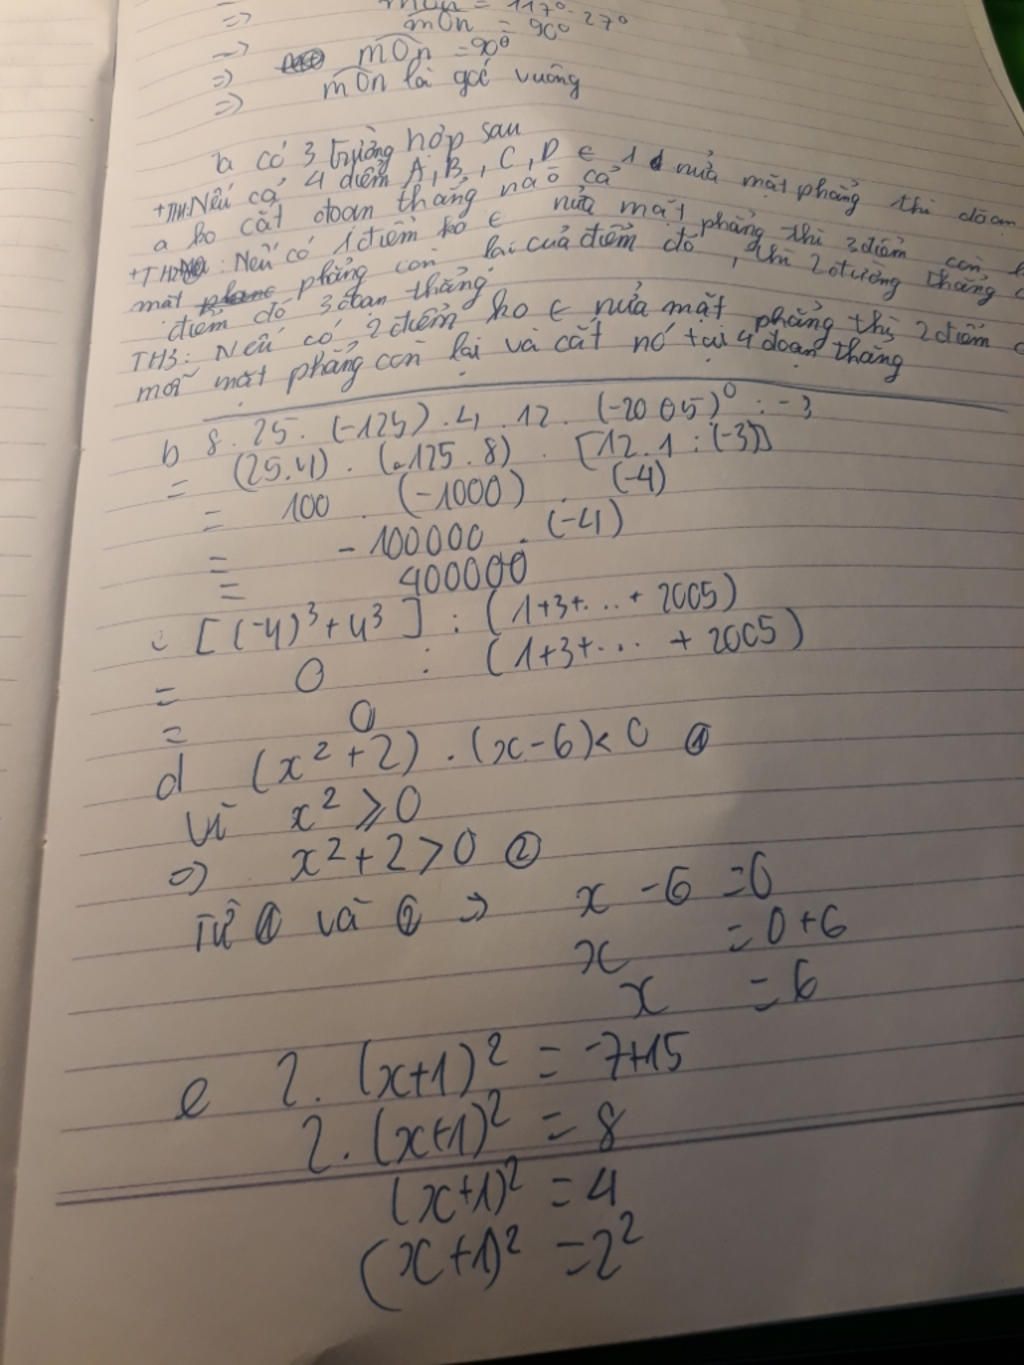 mOn = 117° - 27°
=> mOn = 90°
=> mOn = 90°
=> mOn là góc vuông
=>
a có 3 trường hợp sau
+TH1: Nếu cả 4 điểm A, B, C, D ∈ 1 nửa mặt phẳng thì đoạn
a ko cắt đoạn thẳng nào cả
+TH2: Nếu có 1 điểm ko ∈ nửa mặt phẳng thì 3 điểm còn
mặt phẳng còn lại của điểm đó, thì đường thẳng
điểm đó 3 đoạn thẳng
TH3: Nếu có 2 điểm ko ∈ nửa mặt phẳng thì 2 điểm
mỗi mặt phẳng còn lại và cắt nó tại 4 đoạn thẳng
b 8 . 25 . (-125) . 4 . 12 . (-2005)⁰ : -3
= (25.4) . (-125 . 8) . [12 . 1 : (-3)]
= 100 . (-1000) . (-4)
= -100000 . (-4)
= 400000
c [(-4)³ + 4³] : (1+3+... + 2005)
= 0 : (1+3+... + 2005)
= 0
d (x² + 2) . (x - 6) < 0 ①
Vì x² ⩾ 0
=> x² + 2 > 0 ②
Từ ① và ② => x - 6 = 0
x = 0 + 6
x = 6
e 2. (x+1)² = -7+15
2. (x+1)² = 8
(x+1)² = 4
(x+1)² = 2²